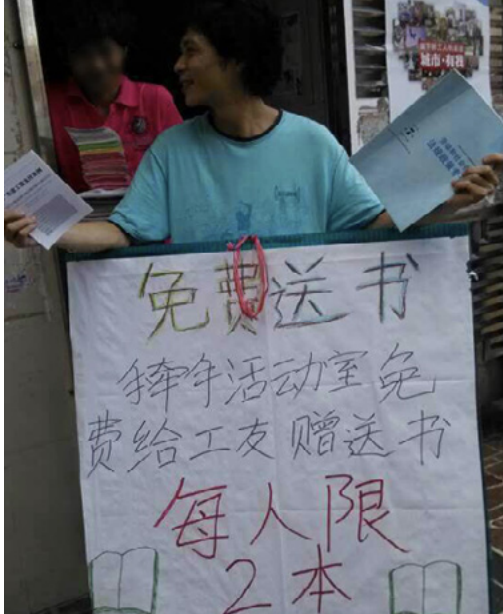 城市·有我
免费送书
牵手活动室免
费给工友赠送书
每人限
2本